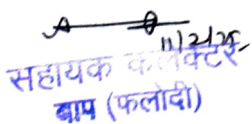 11/2/25
सहायक कलेक्टर
बाप (फलोदी)